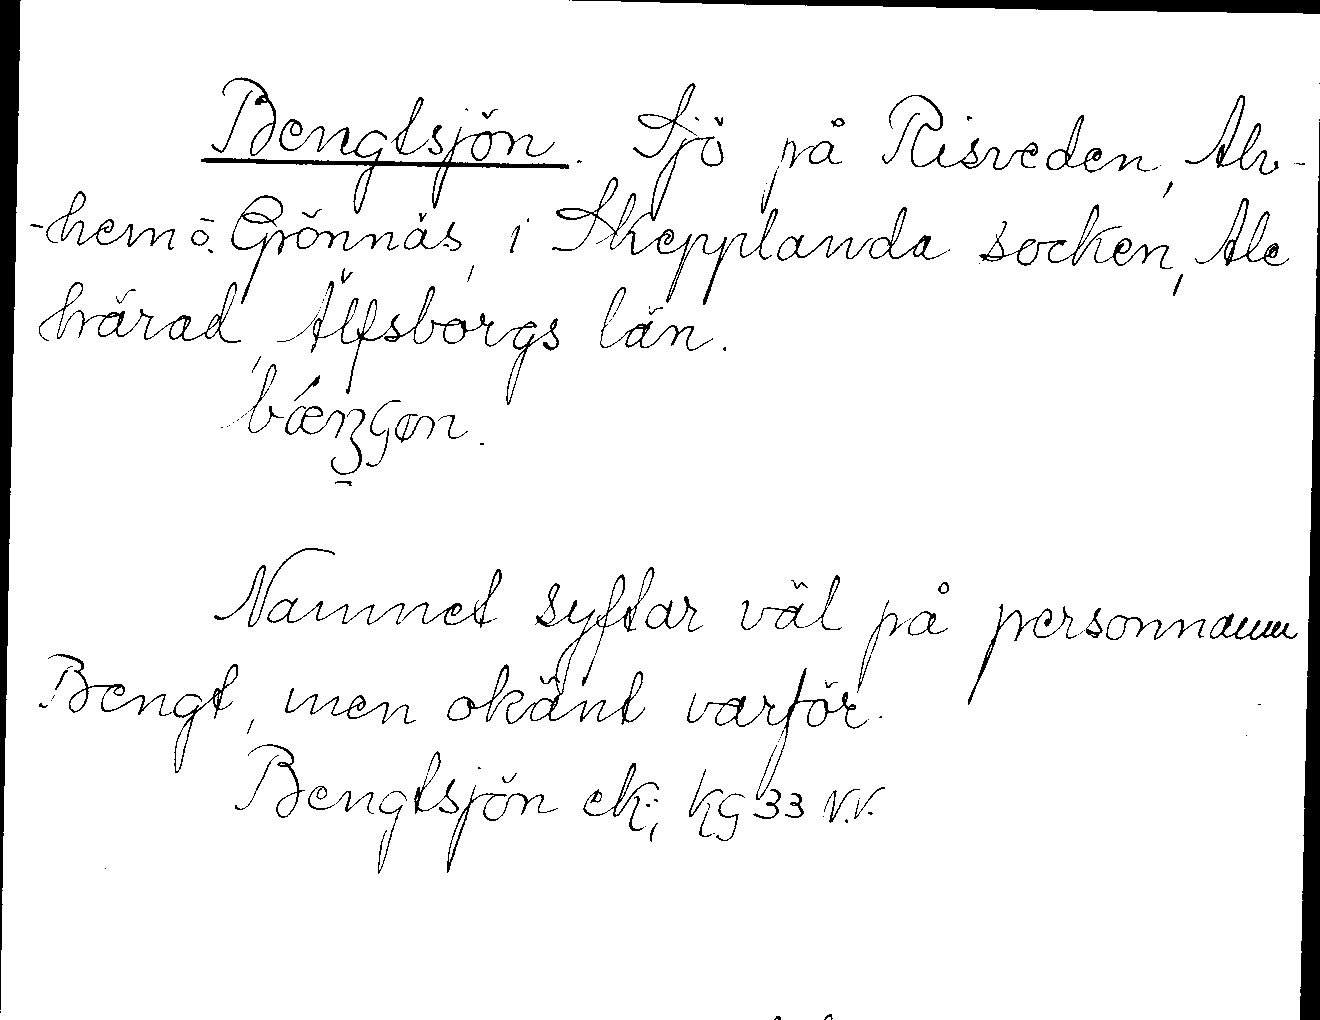 Bengtsjön. Sjö på Risveden, Alv-
-hem o. Grönnäs, i Skepplanda socken, Ale
härad, Älfsborgs län.
Namnet syftar väl på personnamn
Bengt, men okänt varför.
Bengtsjön ek.; kg 33 N.V.